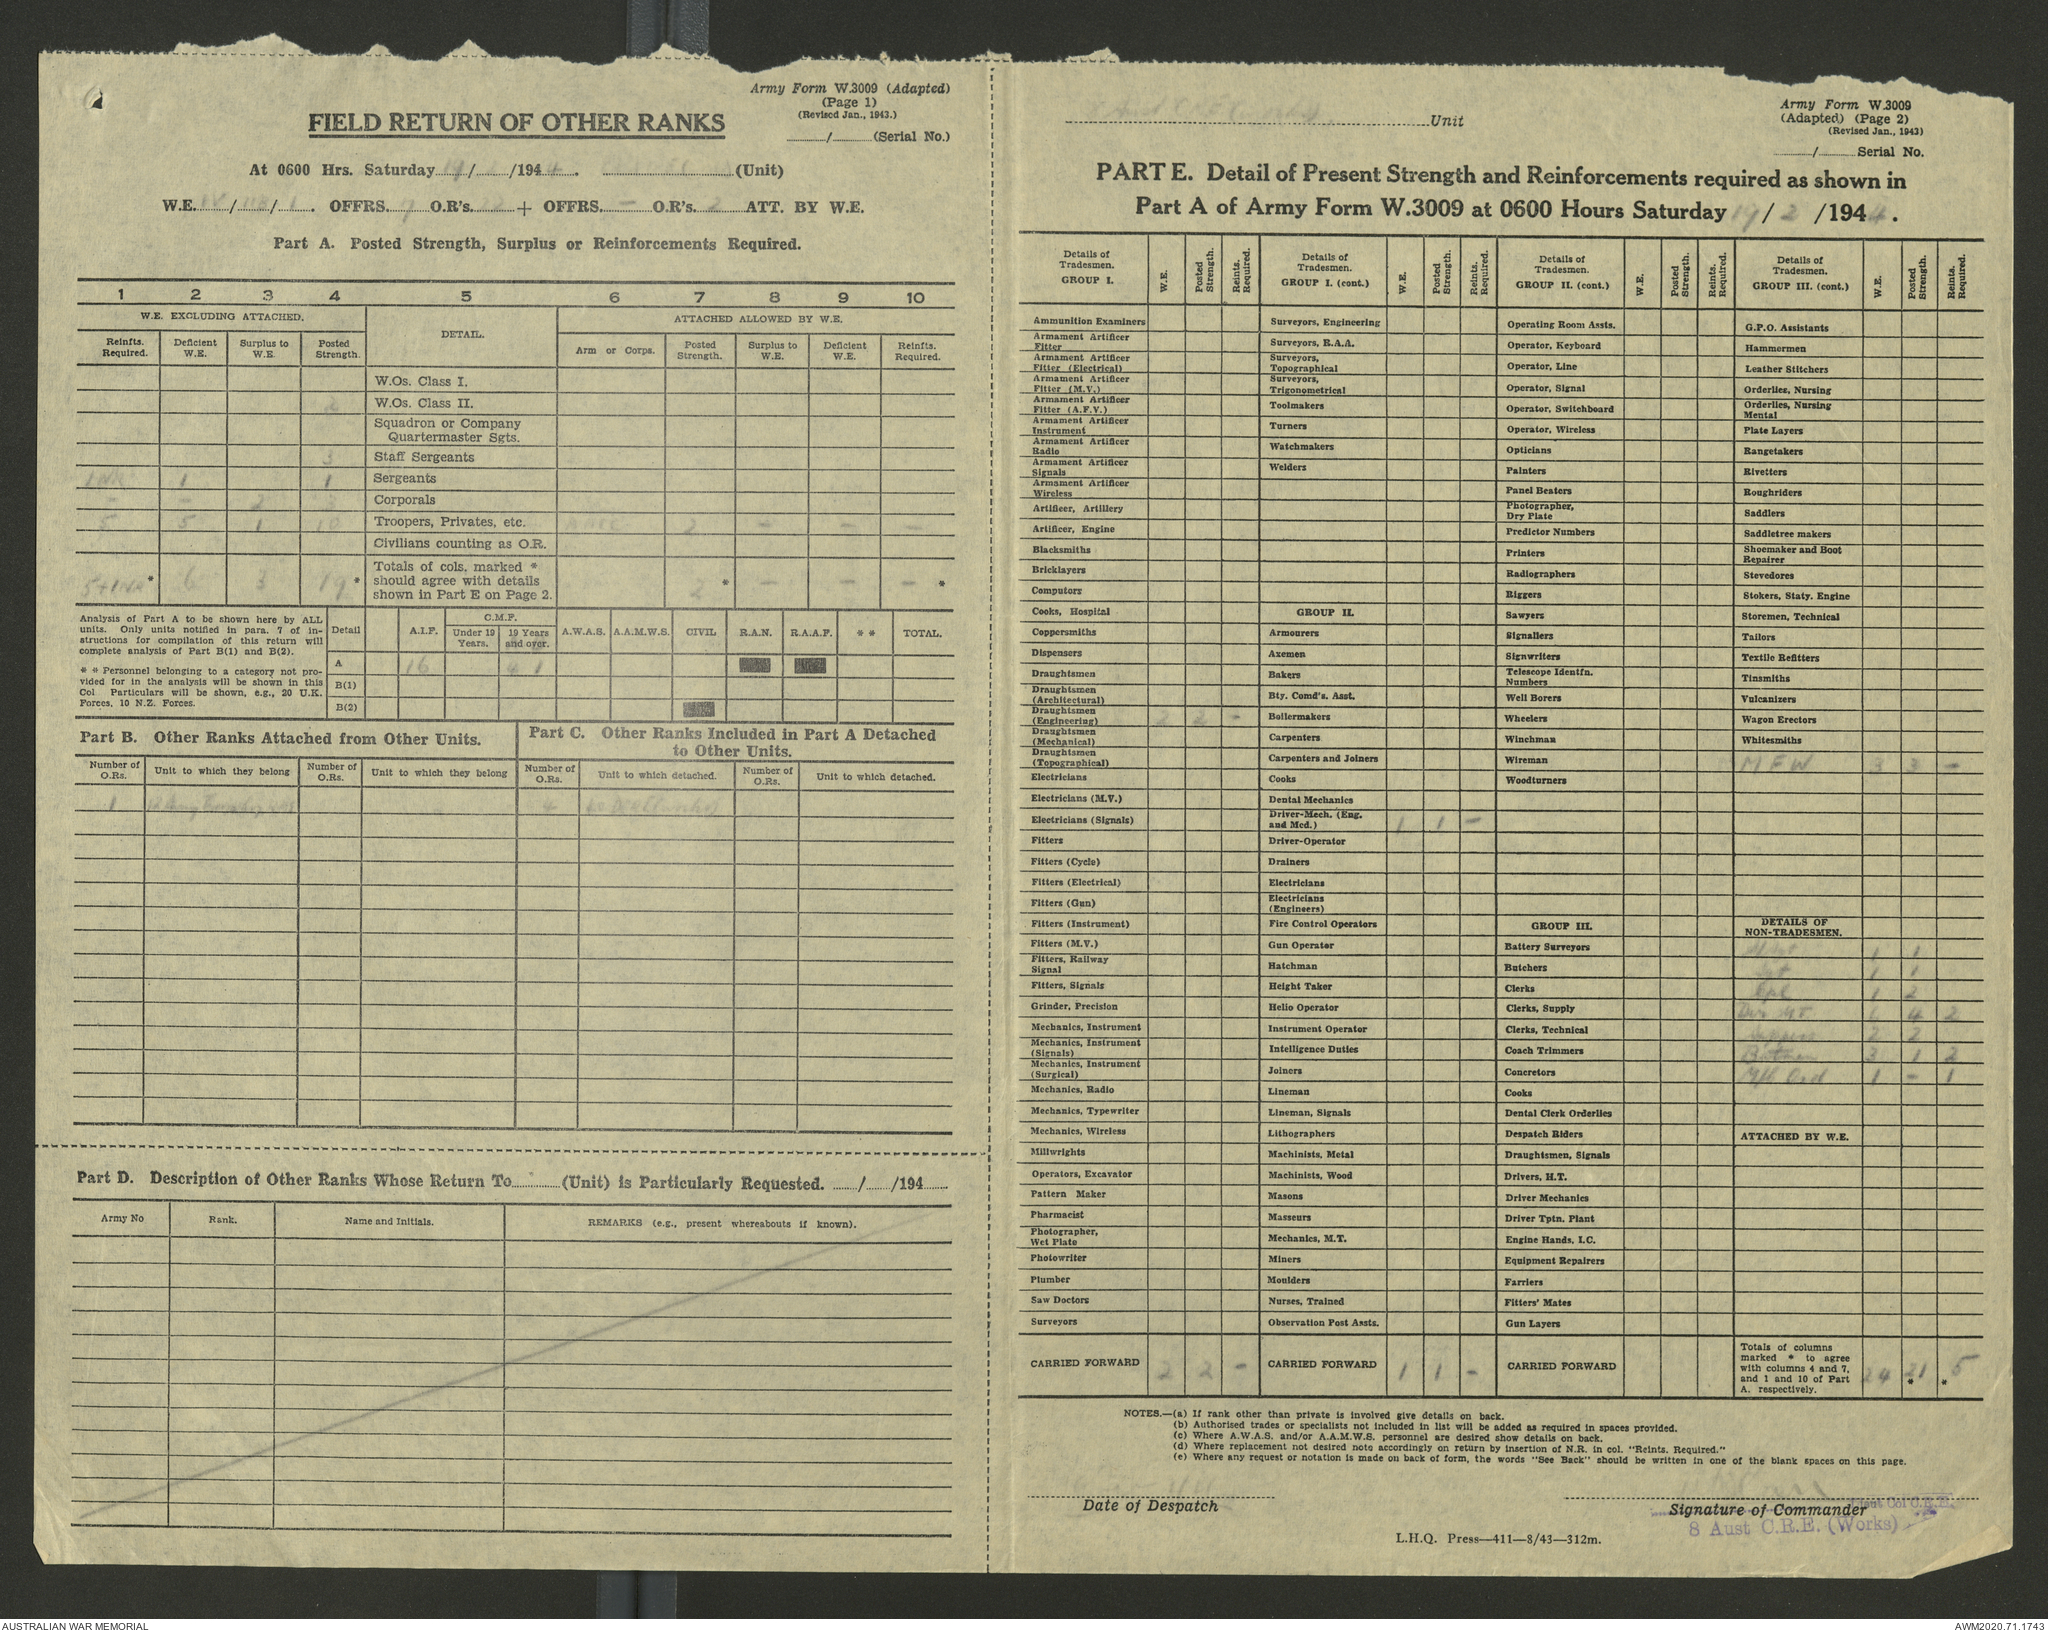 Army Form W.3009 (Adapted)
(Page 1)
(Revised Jan., 1943.)
FIELD RETURN OF OTHER RANKS
....../...... (Serial No.)
At 0600 Hrs. Saturday 19/ /1944. (Unit)
W.E. IV/ / 1. OFFRS. O.R's. 22 + OFFRS. — O.R's. 2 ATT. BY W.E.
Part A. Posted Strength, Surplus or Reinforcements Required.
1 2 3 4 5 6 7 8 9 10
W.E. EXCLUDING ATTACHED. DETAIL. ATTACHED ALLOWED BY W.E.
Reinfts. Required. Deficient W.E. Surplus to W.E. Posted Strength. Arm or Corps. Posted Strength. Surplus to W.E. Deficient W.E. Reinfts. Required.
W.Os. Class I.
W.Os. Class II. 2
Squadron or Company Quartermaster Sgts.
3 Staff Sergeants
1NR 1 1 Sergeants
— — 2 Corporals
5 5 1 10 Troopers, Privates, etc. AACC 2 — — —
Civilians counting as O.R.
5+1NR* 6 3 19* Totals of cols. marked * should agree with details shown in Part E on Page 2. 2* — — —*
Analysis of Part A to be shown here by ALL units. Only units notified in para. 7 of instructions for compilation of this return will complete analysis of Part B(1) and B(2).
* * Personnel belonging to a category not provided for in the analysis will be shown in this Col Particulars will be shown, e.g., 20 U.K. Forces, 10 N.Z. Forces.
Detail A.I.F. C.M.F. Under 19 Years. 19 Years and over. A.W.A.S. A.A.M.W.S. CIVIL R.A.N. R.A.A.F. * * TOTAL.
A 16 4 1
B(1)
B(2)
Part B. Other Ranks Attached from Other Units.
Part C. Other Ranks Included in Part A Detached to Other Units.
Number of O.Rs. Unit to which they belong Number of O.Rs. Unit to which they belong Number of O.Rs. Unit to which detached. Number of O.Rs. Unit to which detached.
1 4
Part D. Description of Other Ranks Whose Return To............(Unit) is Particularly Requested. ....../....../194......
Army No Rank. Name and Initials. REMARKS (e.g., present whereabouts if known).
Unit
Army Form W.3009
(Adapted) (Page 2)
(Revised Jan., 1943)
....../...... Serial No.
PART E. Detail of Present Strength and Reinforcements required as shown in
Part A of Army Form W.3009 at 0600 Hours Saturday 19/2/1944.
Details of Tradesmen. GROUP I. W.E. Posted Strength. Reints. Required.
Ammunition Examiners
Armament Artificer Fitter
Armament Artificer Fitter (Electrical)
Armament Artificer Fitter (M.V.)
Armament Artificer Fitter (A.F.V.)
Armament Artificer Instrument
Armament Artificer Radio
Armament Artificer Signals
Armament Artificer Wireless
Artificer, Artillery
Artificer, Engine
Blacksmiths
Bricklayers
Computors
Cooks, Hospital
Coppersmiths
Dispensers
Draughtsmen
Draughtsmen (Architectural)
Draughtsmen (Engineering) 2 2 —
Draughtsmen (Mechanical)
Draughtsmen (Topographical)
Electricians
Electricians (M.V.)
Electricians (Signals)
Fitters
Fitters (Cycle)
Fitters (Electrical)
Fitters (Gun)
Fitters (Instrument)
Fitters (M.V.)
Fitters, Railway Signal
Fitters, Signals
Grinder, Precision
Mechanics, Instrument
Mechanics, Instrument (Signals)
Mechanics, Instrument (Surgical)
Mechanics, Radio
Mechanics, Typewriter
Mechanics, Wireless
Millwrights
Operators, Excavator
Pattern Maker
Pharmacist
Photographer, Wet Plate
Photowriter
Plumber
Saw Doctors
Surveyors
CARRIED FORWARD 2 2 —
Details of Tradesmen. GROUP I. (cont.) W.E. Posted Strength. Reints. Required.
Surveyors, Engineering
Surveyors, R.A.A.
Surveyors, Topographical
Surveyors, Trigonometrical
Toolmakers
Turners
Watchmakers
Welders
GROUP II.
Armourers
Axemen
Bakers
Bty. Comd's. Asst.
Boilermakers
Carpenters
Carpenters and Joiners
Cooks
Dental Mechanics
Driver-Mech. (Eng. and Med.) 1 1 —
Driver-Operator
Drainers
Electricians
Electricians (Engineers)
Fire Control Operators
Gun Operator
Hatchman
Height Taker
Helio Operator
Instrument Operator
Intelligence Duties
Joiners
Lineman
Lineman, Signals
Lithographers
Machinists, Metal
Machinists, Wood
Masons
Masseurs
Mechanics, M.T.
Miners
Moulders
Nurses, Trained
Observation Post Assts.
CARRIED FORWARD 1 1 —
Details of Tradesmen. GROUP II. (cont.) W.E. Posted Strength. Reints. Required.
Operating Room Assts.
Operator, Keyboard
Operator, Line
Operator, Signal
Operator, Switchboard
Operator, Wireless
Opticians
Painters
Panel Beaters
Photographer, Dry Plate
Predictor Numbers
Printers
Radiographers
Riggers
Sawyers
Signallers
Signwriters
Telescope Identfn. Numbers
Well Borers
Wheelers
Winchman
Wireman
Woodturners
GROUP III.
Battery Surveyors
Butchers
Clerks
Clerks, Supply
Clerks, Technical
Coach Trimmers
Concretors
Cooks
Dental Clerk Orderlies
Despatch Riders
Draughtsmen, Signals
Drivers, H.T.
Driver Mechanics
Driver Tptn. Plant
Engine Hands, I.C.
Equipment Repairers
Farriers
Fitters' Mates
Gun Layers
CARRIED FORWARD
Details of Tradesmen. GROUP III. (cont.) W.E. Posted Strength. Reints. Required.
G.P.O. Assistants
Hammermen
Leather Stitchers
Orderlies, Nursing
Orderlies, Nursing Mental
Plate Layers
Rangetakers
Rivetters
Roughriders
Saddlers
Saddletree makers
Shoemaker and Boot Repairer
Stevedores
Stokers, Staty. Engine
Storemen, Technical
Tailors
Textile Refitters
Tinsmiths
Vulcanizers
Wagon Erectors
Whitesmiths
M F W 3 3 —
DETAILS OF NON-TRADESMEN.
1 1
Sgt 1 1
Cpl 1 2
Dvr MT 6 4 2
Sappers 2 2
Batmen 3 1 2
M/c Ord 1 — 1
ATTACHED BY W.E.
Totals of columns marked * to agree with columns 4 and 7, and 1 and 10 of Part A. respectively. 24 21* *5
NOTES.—(a) If rank other than private is involved give details on back.
(b) Authorised trades or specialists not included in list will be added as required in spaces provided.
(c) Where A.W.A.S. and/or A.A.M.W.S. personnel are desired show details on back.
(d) Where replacement not desired note accordingly on return by insertion of N.R. in col. "Reints. Required."
(e) Where any request or notation is made on back of form, the words "See Back" should be written in one of the blank spaces on this page.
Date of Despatch
Signature of Commander
Lieut Col C.R.E.
8 Aust C.R.E. (Works)
L.H.Q. Press—411—8/43—312m.
AUSTRALIAN WAR MEMORIAL
AWM2020.71.1743